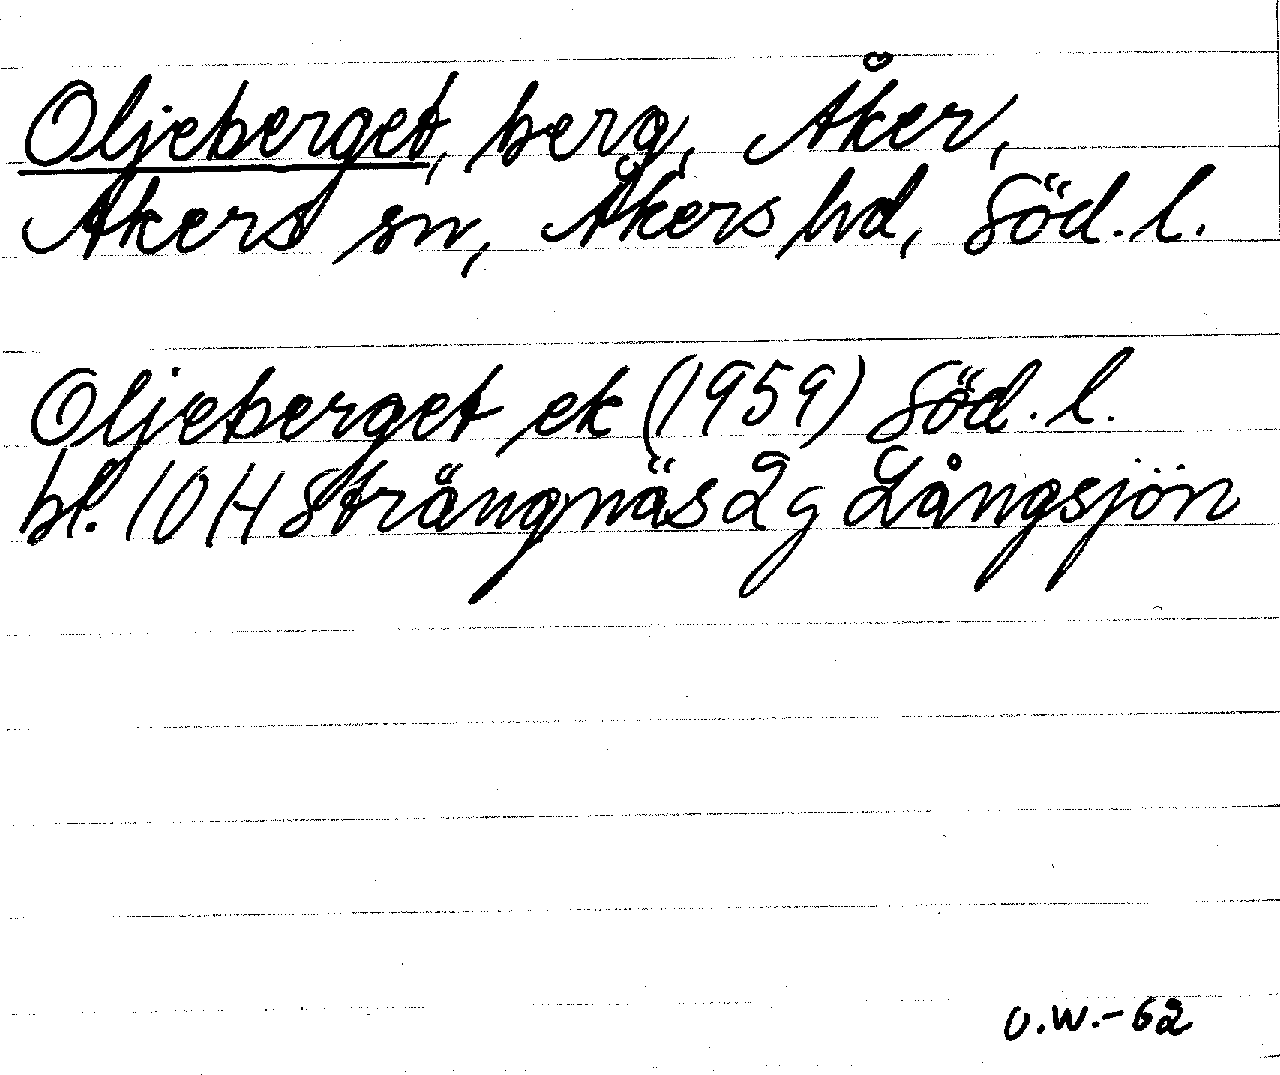 Oljeberget, berg, Åker,
Åkers sn, Åkers hd, Söd. l.
Oljeberget ek (1959) Söd. l.
bl. 10 H Strängnäs 2g Långsjön
U.W.-62